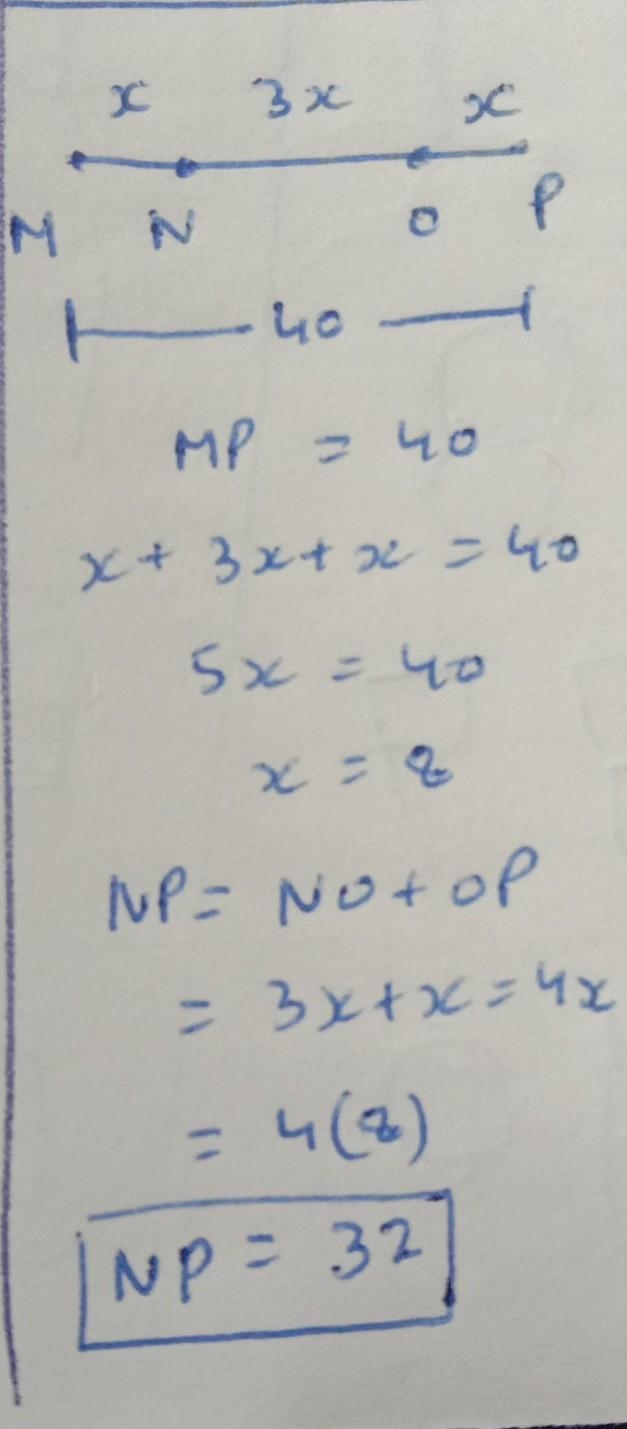 x 3x x
M N O P
40
MP = 40
x + 3x + x = 40
5x = 40
x = 8
NP = NO + OP
= 3x + x = 4x
= 4(8)
NP = 32